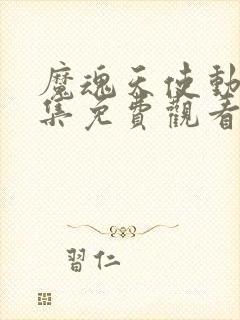 魔魂天使動
集免費觀看
習仁